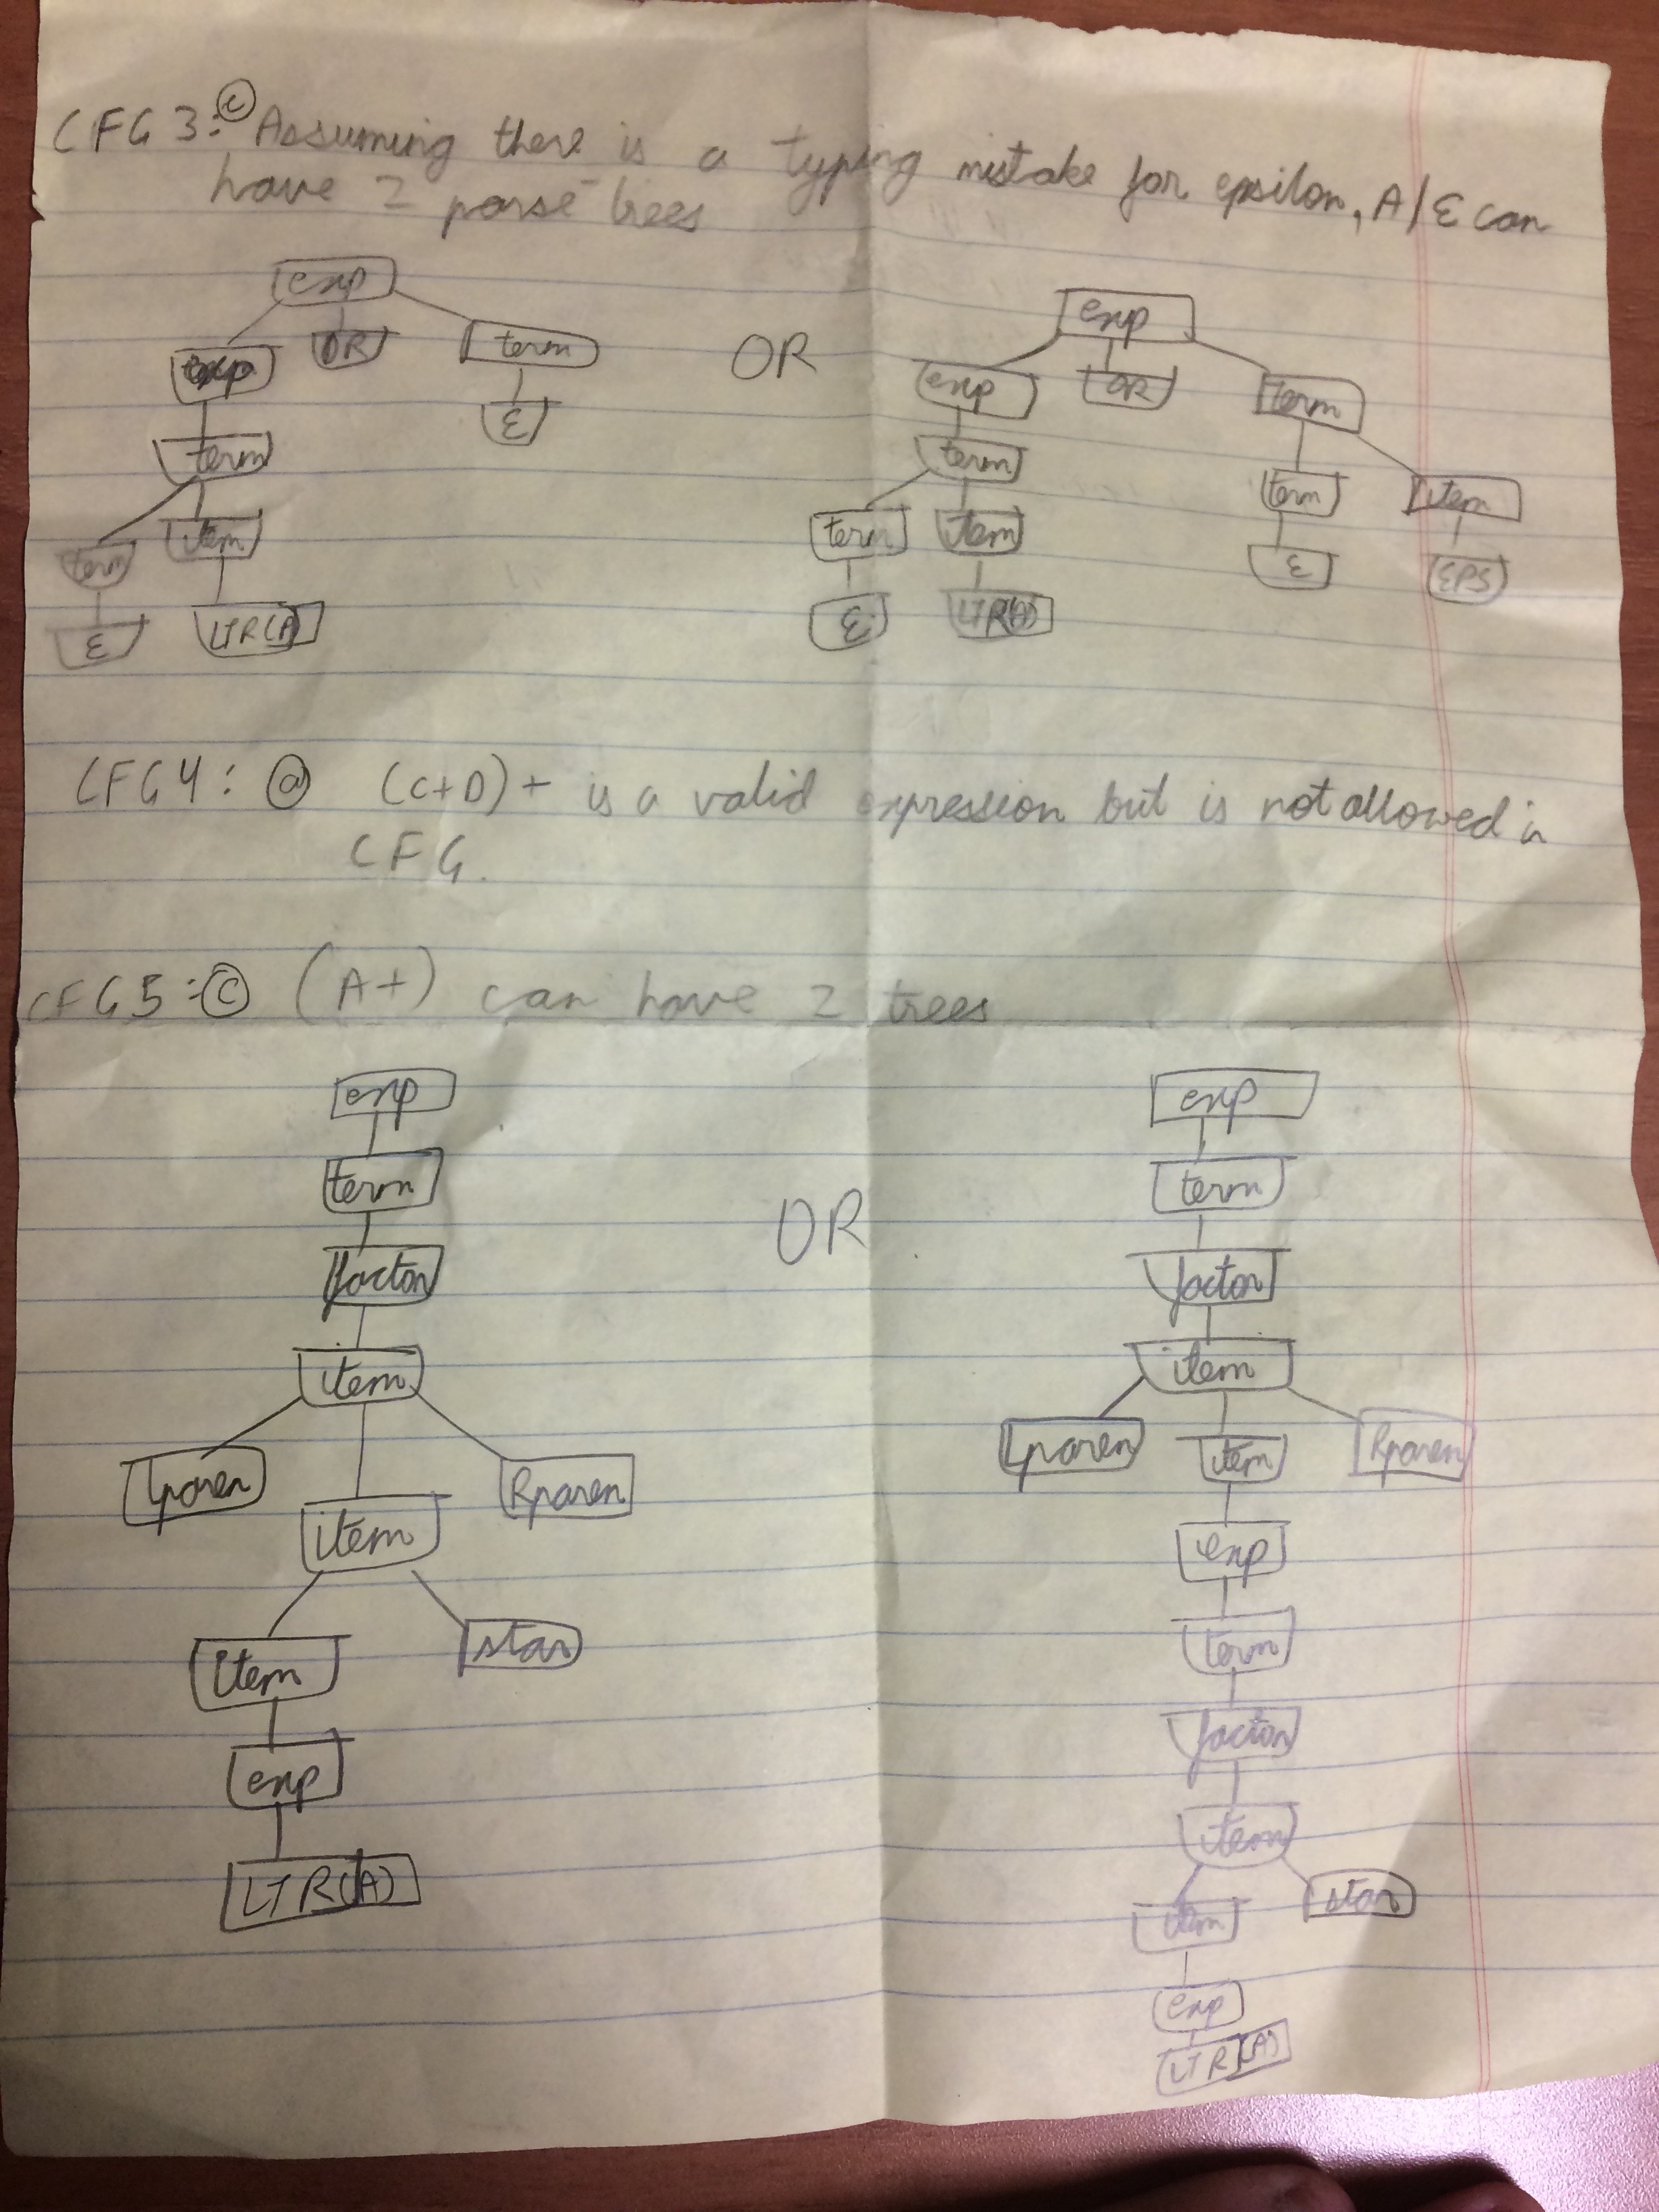 CFG 3: (c) Assuming there is a typing mistake for epsilon, A/ε can
have 2 parse trees
exp
exp OR term
term ε
term item
ε LTR(A)
OR
exp
exp OR term
term term item
term item ε EPS
ε LTR(A)
CFG 4: (a) (C+D)+ is a valid expression but is not allowed in
CFG.
CFG 5: (c) (A+) can have 2 trees
exp
term
factor
item
Lparen item Rparen
item star
exp
LTR(A)
OR
exp
term
factor
item
Lparen item Rparen
exp
term
factor
item
item star
exp
LTR(A)